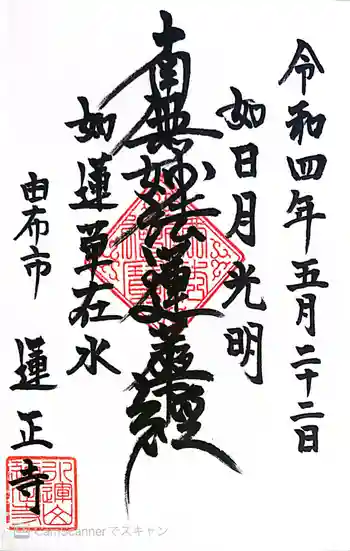 令和四年五月二十二日
如日月光明
南無妙法蓮華経
如蓮華在水
由布市
蓮正寺
CamScannerでスキャン